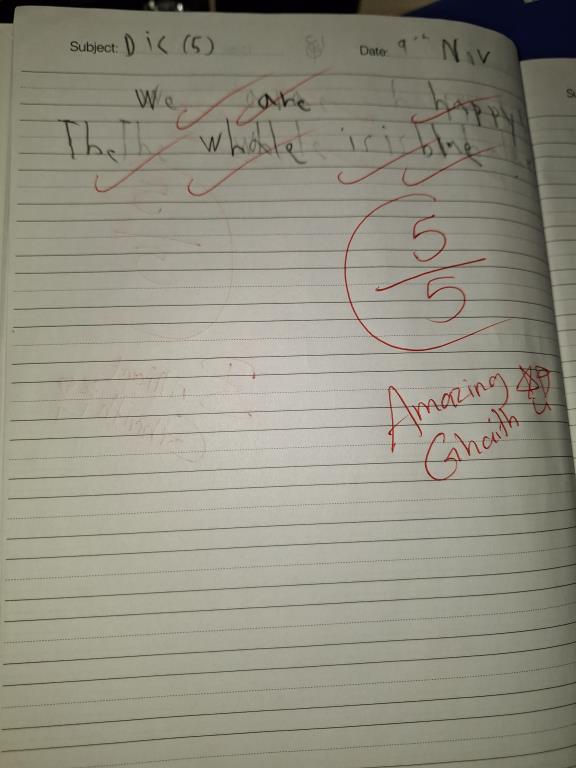 Subject: Dic (5) Date: 9th Nov
We are happy
The whole is blue
5
5
Amazing
Ghaith